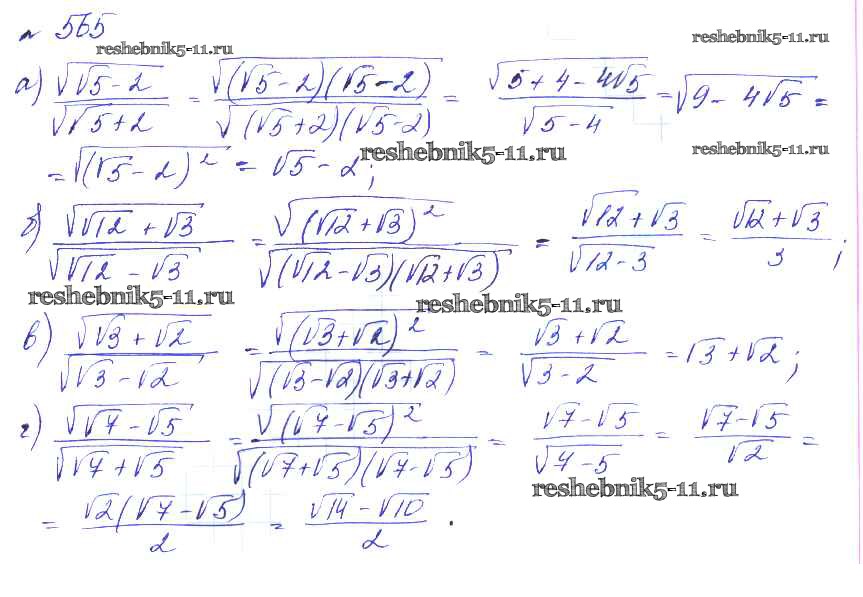 № 565
reshebnik5-11.ru
reshebnik5-11.ru
а) √(√5 - 2) / √(√5 + 2) = √((√5 - 2)(√5 - 2)) / √((√5 + 2)(√5 - 2)) = √(5 + 4 - 4√5) / √(5 - 4) = √(9 - 4√5) =
= √((√5 - 2)²) = √5 - 2;
reshebnik5-11.ru
reshebnik5-11.ru
б) √(√12 + √3) / √(√12 - √3) = √((√12 + √3)²) / √((√12 - √3)(√12 + √3)) = √12 + √3 / √(12 - 3) = √12 + √3 / 3;
reshebnik5-11.ru
reshebnik5-11.ru
в) √(√3 + √2) / √(√3 - √2) = √((√3 + √2)²) / √((√3 - √2)(√3 + √2)) = √3 + √2 / √(3 - 2) = √3 + √2;
г) √(√7 - √5) / √(√7 + √5) = √((√7 - √5)²) / √((√7 + √5)(√7 - √5)) = √7 - √5 / √(7 - 5) = √7 - √5 / √2 =
reshebnik5-11.ru
= √2(√7 - √5) / 2 = √14 - √10 / 2.